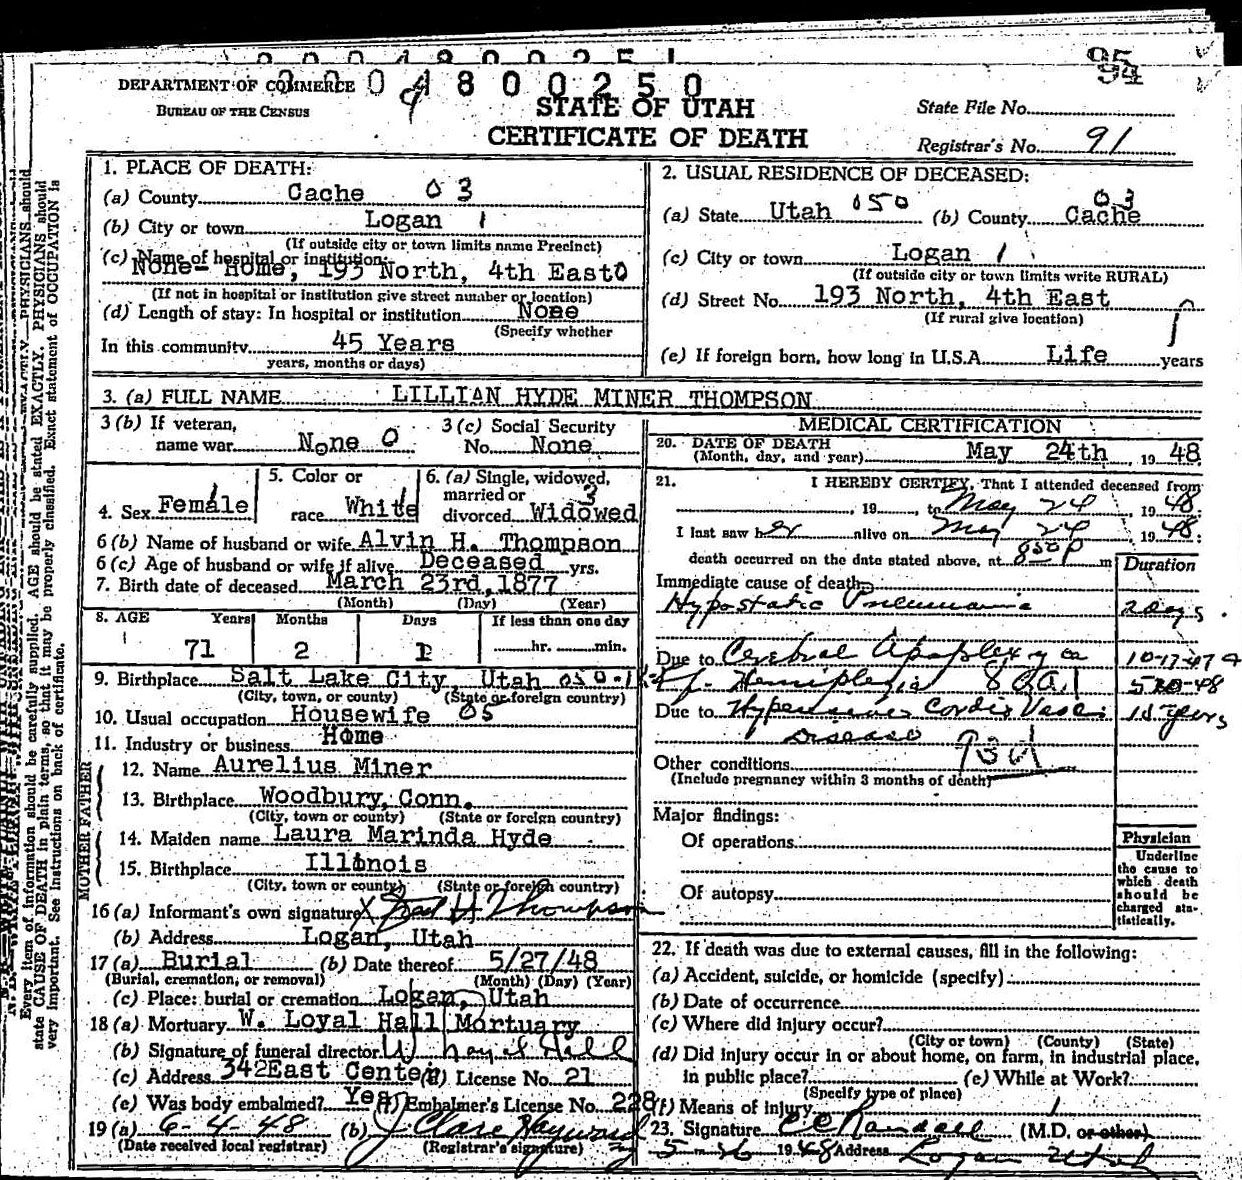 95
94
DEPARTMENT OF COMMERCE
0004800250
BUREAU OF THE CENSUS
STATE OF UTAH
CERTIFICATE OF DEATH
State File No.
Registrar's No. 91
1. PLACE OF DEATH:
(a) County Cache 03
(b) City or town Logan 1
(If outside city or town limits name Precinct)
(c) Name of hospital or institution:
None- Home, 193 North, 4th East 0
(If not in hospital or institution give street number or location)
(d) Length of stay: In hospital or institution None
(Specify whether
In this community 45 Years
years, months or days)
2. USUAL RESIDENCE OF DECEASED:
(a) State Utah 050 (b) County Cache 03
(c) City or town Logan 1
(If outside city or town limits write RURAL)
(d) Street No. 193 North, 4th East
(If rural give location)
(e) If foreign born, how long in U.S.A. Life years
3. (a) FULL NAME LILLIAN HYDE MINER THOMPSON
3 (b) If veteran,
name war None 0
3 (c) Social Security
No. None
4. Sex Female
5. Color or
race White
6. (a) Single, widowed,
married or
divorced Widowed 3
6 (b) Name of husband or wife Alvin H. Thompson
6 (c) Age of husband or wife if alive Deceased yrs.
7. Birth date of deceased March 23rd, 1877
(Month) (Day) (Year)
8. AGE Years Months Days If less than one day
71 2 1 hr. min.
9. Birthplace Salt Lake City, Utah
(City, town, or county) (State or foreign country)
10. Usual occupation Housewife 05
11. Industry or business Home
FATHER
12. Name Aurelius Miner
13. Birthplace Woodbury, Conn.
(City, town or county) (State or foreign country)
MOTHER
14. Maiden name Laura Marinda Hyde
15. Birthplace Illinois
(City, town or county) (State or foreign country)
16 (a) Informant's own signature X Fred H Thompson
(b) Address Logan, Utah
17 (a) Burial (b) Date thereof 5/27/48
(Burial, cremation, or removal) (Month) (Day) (Year)
(c) Place: burial or cremation Logan, Utah
18 (a) Mortuary W. Loyal Hall Mortuary
(b) Signature of funeral director W Loyal Hall
(c) Address 342 East Center (d) License No. 21
(e) Was body embalmed? Yes (f) Embalmer's License No. 228
19 (a) 6-4-48 (b) J Clare Hayward
(Date received local registrar) (Registrar's signature)
MEDICAL CERTIFICATION
20. DATE OF DEATH
(Month, day, and year) May 24th, 1948
21. I HEREBY CERTIFY, That I attended deceased from
, 19 , to May 24, 1948;
I last saw her alive on May 24 1948;
death occurred on the date stated above, at 850 P m
Duration
Immediate cause of death
Hypostatic Pneumonia 2 days.
Due to Cerebral Apoplexy 10-17-47
Hemiplegia 83a1 5-20-48
Due to Hypertensive Cardio Vasc. years
Disease
Other conditions
(Include pregnancy within 3 months of death)
Major findings:
Of operations
Of autopsy
Physician
Underline
the cause to
which death
should be
charged sta-
tistically.
22. If death was due to external causes, fill in the following:
(a) Accident, suicide, or homicide (specify)
(b) Date of occurrence
(c) Where did injury occur?
(City or town) (County) (State)
(d) Did injury occur in or about home, on farm, in industrial place,
in public place? (e) While at Work?
(Specify type of place)
(f) Means of injury
23. Signature CC Randall (M.D. or other)
5-26 1948 Address Logan Utah
Every item of information should be carefully supplied. AGE should be stated EXACTLY. PHYSICIANS should
state CAUSE OF DEATH in plain terms, so that it may be properly classified. Exact statement of OCCUPATION is
very important. See instructions on back of certificate.